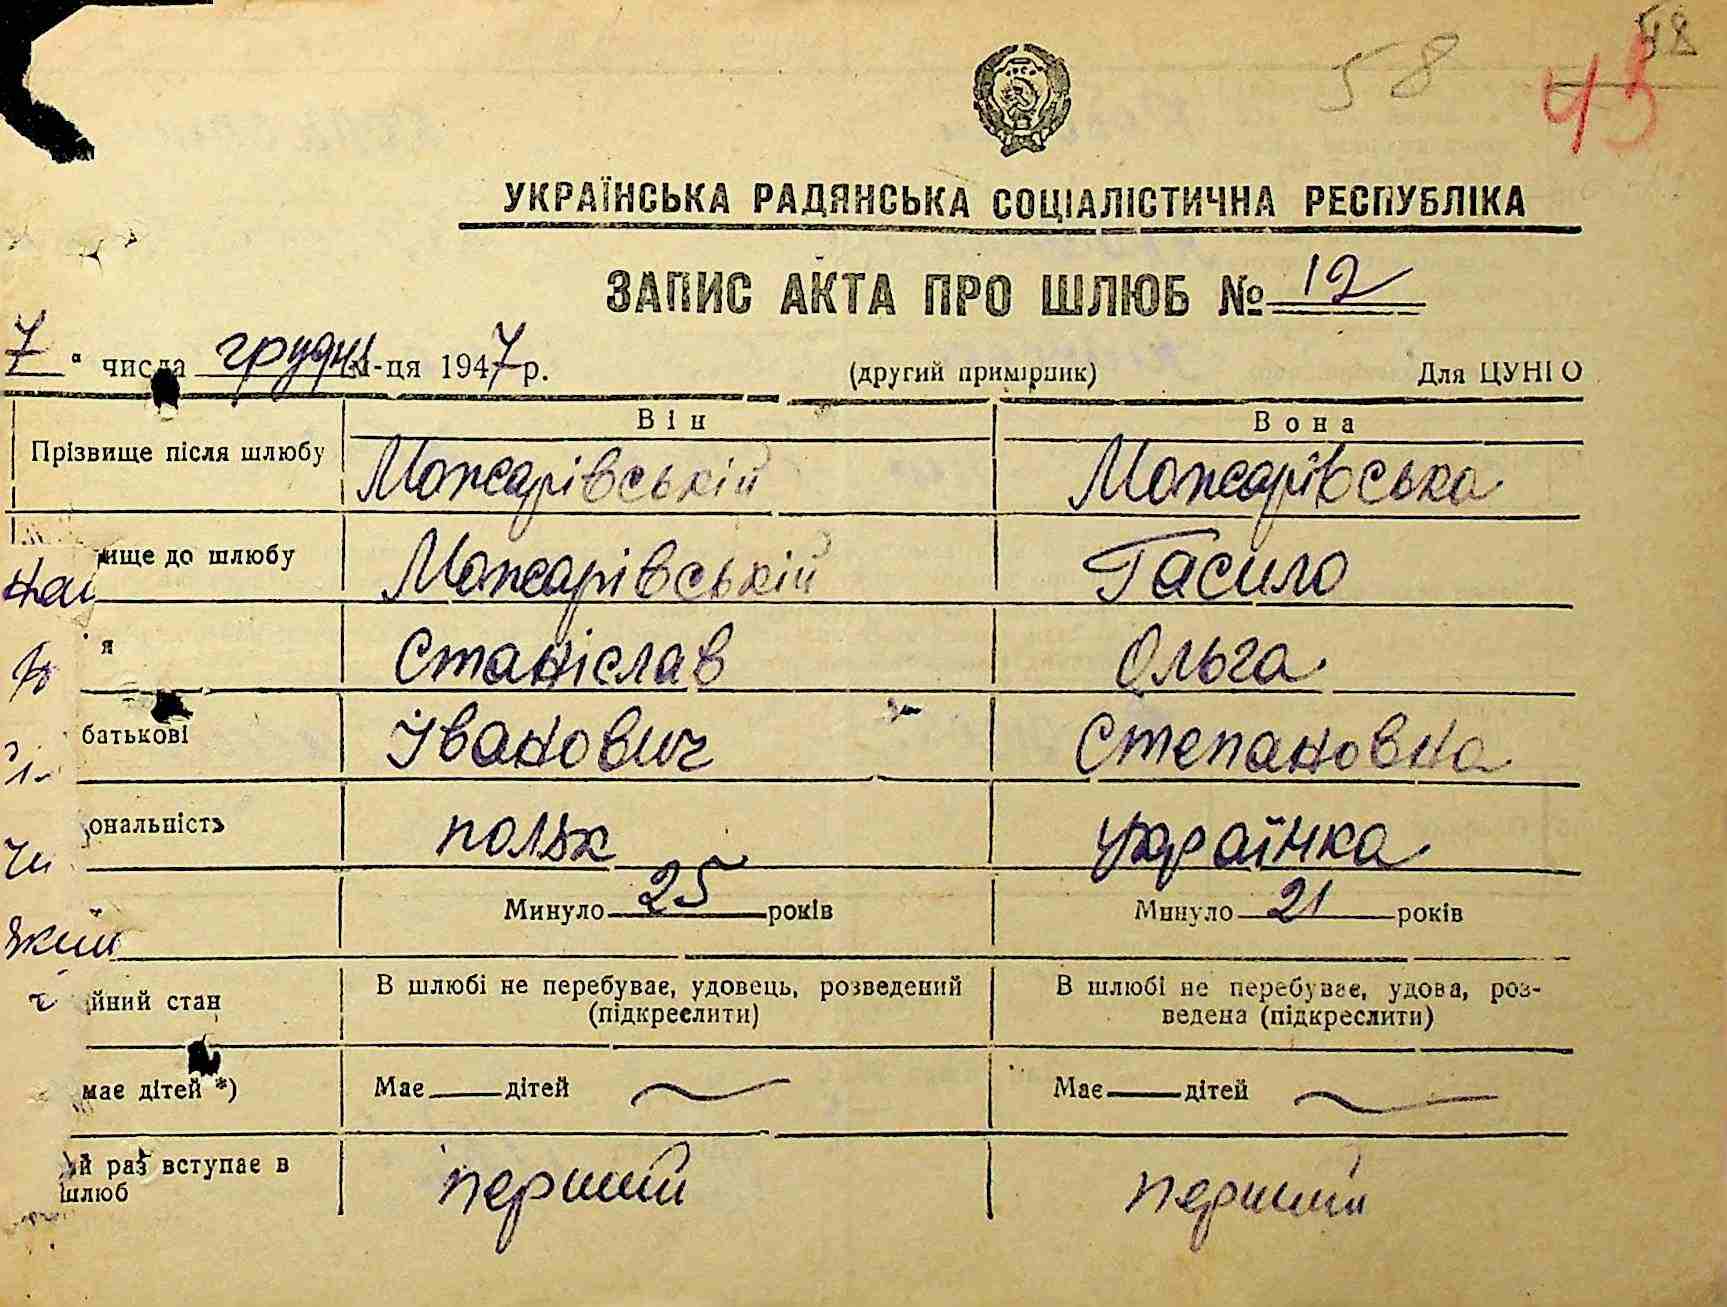 58
48
43
УКРАЇНСЬКА РАДЯНСЬКА СОЦІАЛІСТИЧНА РЕСПУБЛІКА
ЗАПИС АКТА ПРО ШЛЮБ № 12
7 " числа грудня м-ця 1947 р. (другий примірник) Для ЦУНІО
Він Вона
Прізвище після шлюбу Можарівській Можарівська
ище до шлюбу Можарівській Гасило
я Станіслав Ольга
батькові Іванович Степановна
ональність поляк українка
Минуло 25 років Минуло 21 років
ійний стан В шлюбі не перебуває, удовець, розведений В шлюбі не перебуває, удова, роз-
(підкреслити) ведена (підкреслити)
має дітей *) Має дітей Має дітей
ий раз вступає в перший перший
шлюб